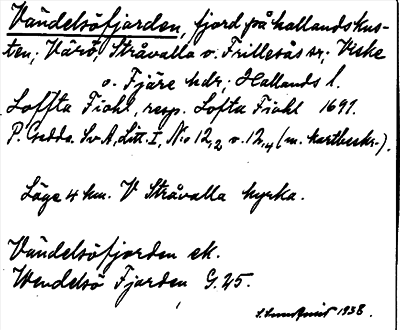 Vändelsöfjorden, fjord på hallandskus-
ten; Värö, Stråvalla o. Frillesås sr; Viske
o. Fjäre hdr; Hallands l.
Loffta Fiohl, resp. Lofta Fiohl 1691.
P. Gedda. Sv. A, Litt. I, No 12,2 o. 12,4 (m. kartbeskr.).
Läge 4 km. V Stråvalla kyrka.
Vändelsöfjorden ek.
Wendelsö Fjorden G. 25.
1938.